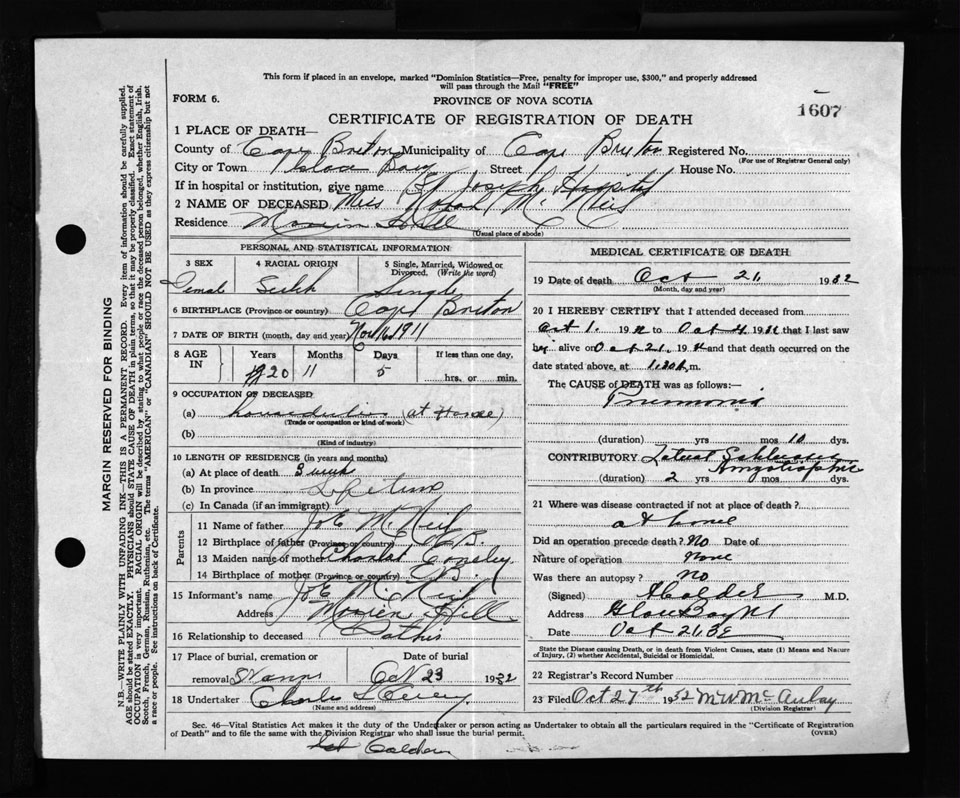 This form if placed in an envelope, marked "Dominion Statistics—Free, penalty for improper use, $300," and properly addressed
will pass through the Mail "FREE"
FORM 6.
PROVINCE OF NOVA SCOTIA
1607
CERTIFICATE OF REGISTRATION OF DEATH
1 PLACE OF DEATH—
County of Cape Breton Municipality of Cape Breton Registered No.
(For use of Registrar General only)
City or Town Bay Street House No.
If in hospital or institution, give name St Joseph Hospital
2 NAME OF DECEASED Miss McNeil
Residence Hill
(Usual place of abode)
PERSONAL AND STATISTICAL INFORMATION
3 SEX
4 RACIAL ORIGIN
5 Single, Married, Widowed or
Divorced. (Write the word)
Female Single
6 BIRTHPLACE (Province or country) Cape Breton
7 DATE OF BIRTH (month, day and year) Nov 16 1911
8 AGE IN
Years Months Days If less than one day,
20 11 5 hrs. or min.
9 OCCUPATION OF DECEASED
(a) (at Home)
(Trade or occupation or kind of work)
(b)
(Kind of industry)
10 LENGTH OF RESIDENCE (in years and months)
(a) At place of death 3 weeks
(b) In province Lifetime
(c) In Canada (if an immigrant)
Parents
11 Name of father Joe McNeil
12 Birthplace of father (Province or country) C.B.
13 Maiden name of mother
14 Birthplace of mother (Province or country) C.B.
15 Informant's name Joe McNeil
Address Hill
16 Relationship to deceased Father
17 Place of burial, cremation or
removal
Date of burial
Oct 23 1932
18 Undertaker Charles
(Name and address)
MEDICAL CERTIFICATE OF DEATH
19 Date of death Oct 21 1932
(Month, day and year)
20 I HEREBY CERTIFY that I attended deceased from
Oct 1. 1932 to Oct 21 1932 that I last saw
her alive on Oct 21. 1932 and that death occurred on the
date stated above, at 1.30 a.m.
The CAUSE of DEATH was as follows:—
Pneumonia
(duration) yrs mos 10 dys.
CONTRIBUTORY Lateral Sclerosis
Amyotrophic
(duration) 2 yrs mos dys.
21 Where was disease contracted if not at place of death?
at home
Did an operation precede death? No Date of
Nature of operation None
Was there an autopsy? No
(Signed) M.D.
Address Glace Bay NS
Date Oct 21.32
State the Disease causing Death, or in death from Violent Causes, state (1) Means and Nature
of Injury, (2) whether Accidental, Suicidal or Homicidal.
22 Registrar's Record Number
23 Filed Oct 27th 1932 M W McAulay
(Division Registrar)
Sec. 46—Vital Statistics Act makes it the duty of the Undertaker or person acting as Undertaker to obtain all the particulars required in the "Certificate of Registration
of Death" and to file the same with the Division Registrar who shall issue the burial permit.
(OVER)
MARGIN RESERVED FOR BINDING
N.B.—WRITE PLAINLY WITH UNFADING INK—THIS IS A PERMANENT RECORD. Every item of information should be carefully supplied.
AGE should be stated EXACTLY. PHYSICIANS should STATE CAUSE OF DEATH in plain terms, so that it may be properly classified. Exact statement of
OCCUPATION is very important. RACIAL ORIGIN will be described by stating to what people or race the deceased person belonged, whether English, Irish,
Scotch, French, German, Russian, Ruthenian, etc. The terms "AMERICAN" or "CANADIAN" SHOULD NOT BE USED as they express citizenship but not
a race or people. See instructions on back of Certificate.